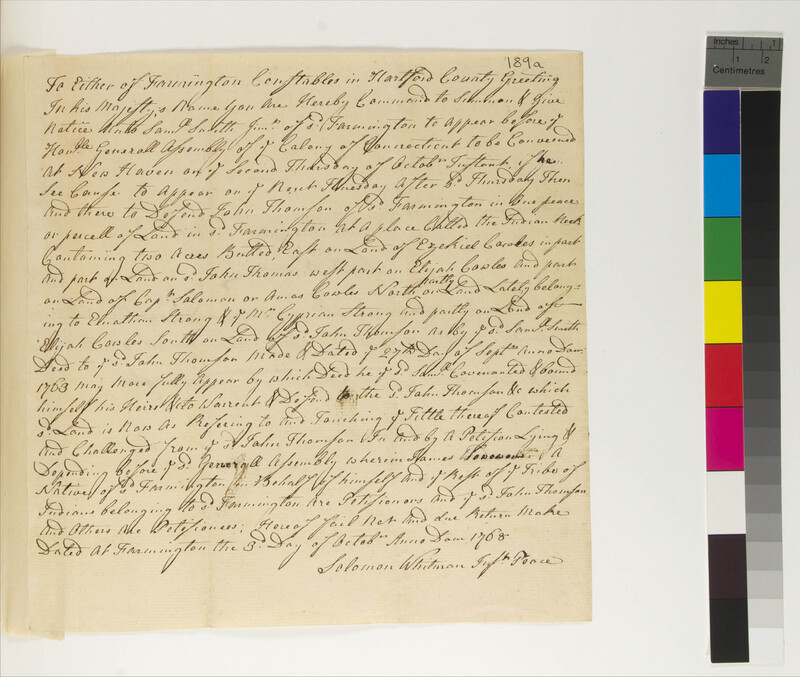 189a
To Either of Farmington Constables in Hartford County Greeting
In his Majestys Name You Are Hereby Command to Summon & Give
Notice Unto Samll Smith Junr of sd Farmington to Appear before ye
Honble Generall Assembly of ye Colony of Connecticut to be Convened
At New Haven on ye Second Thursday of Octobr Instant, if he
See Cause to Appear on ye Next Tuesday After sd Thursday Then
And there to Defend John Thomson of sd Farmington in One peace
or percell of Land in sd Farmington At A place Called the Indian Neck
Containing two Acres Butted, East on Land of Ezekiel Cowles in part
And part on Land on sd John Thomas west part on Elijah Cowles And part
on Land of Capt Solomon or Amos Cowles North partly on Land Lately belong-
ing to Elnathan Strong & ye Mr Cyprian Strong And partly on Land of
Elijah Cowles South on Land of sd John Thomson As by ye sd Samll Smith
Deed to ye sd John Thomson Made & Dated ye 27th Day of Septr Anno Dom:
1763 may More fully Appear by which Deed he ye sd Samll Covenanted & bound
himself his Heirs &c to Warrent & Defend to the sd John Thomson &c which
sd Land is Now As Refering to And Touching ye Tittle thereof Contested
And Challenged from ye sd John Thomson In and by A Petition Lying &
Depending before ye sd Generall Assembly wherein James A
Native of sd Farmington in Behalf of himself And ye Rest of ye Tribe of
Indians belonging to sd Farmington Are Petitioners And ye sd John Thomson
And Others Are Petitionees; Hereof fail Not And due Return Make
Dated At Farmington the 3d Day of Octobr Anno Dom 1768
Solomon Whitman Justc Peace
Inches 1
1 2
Centimetres